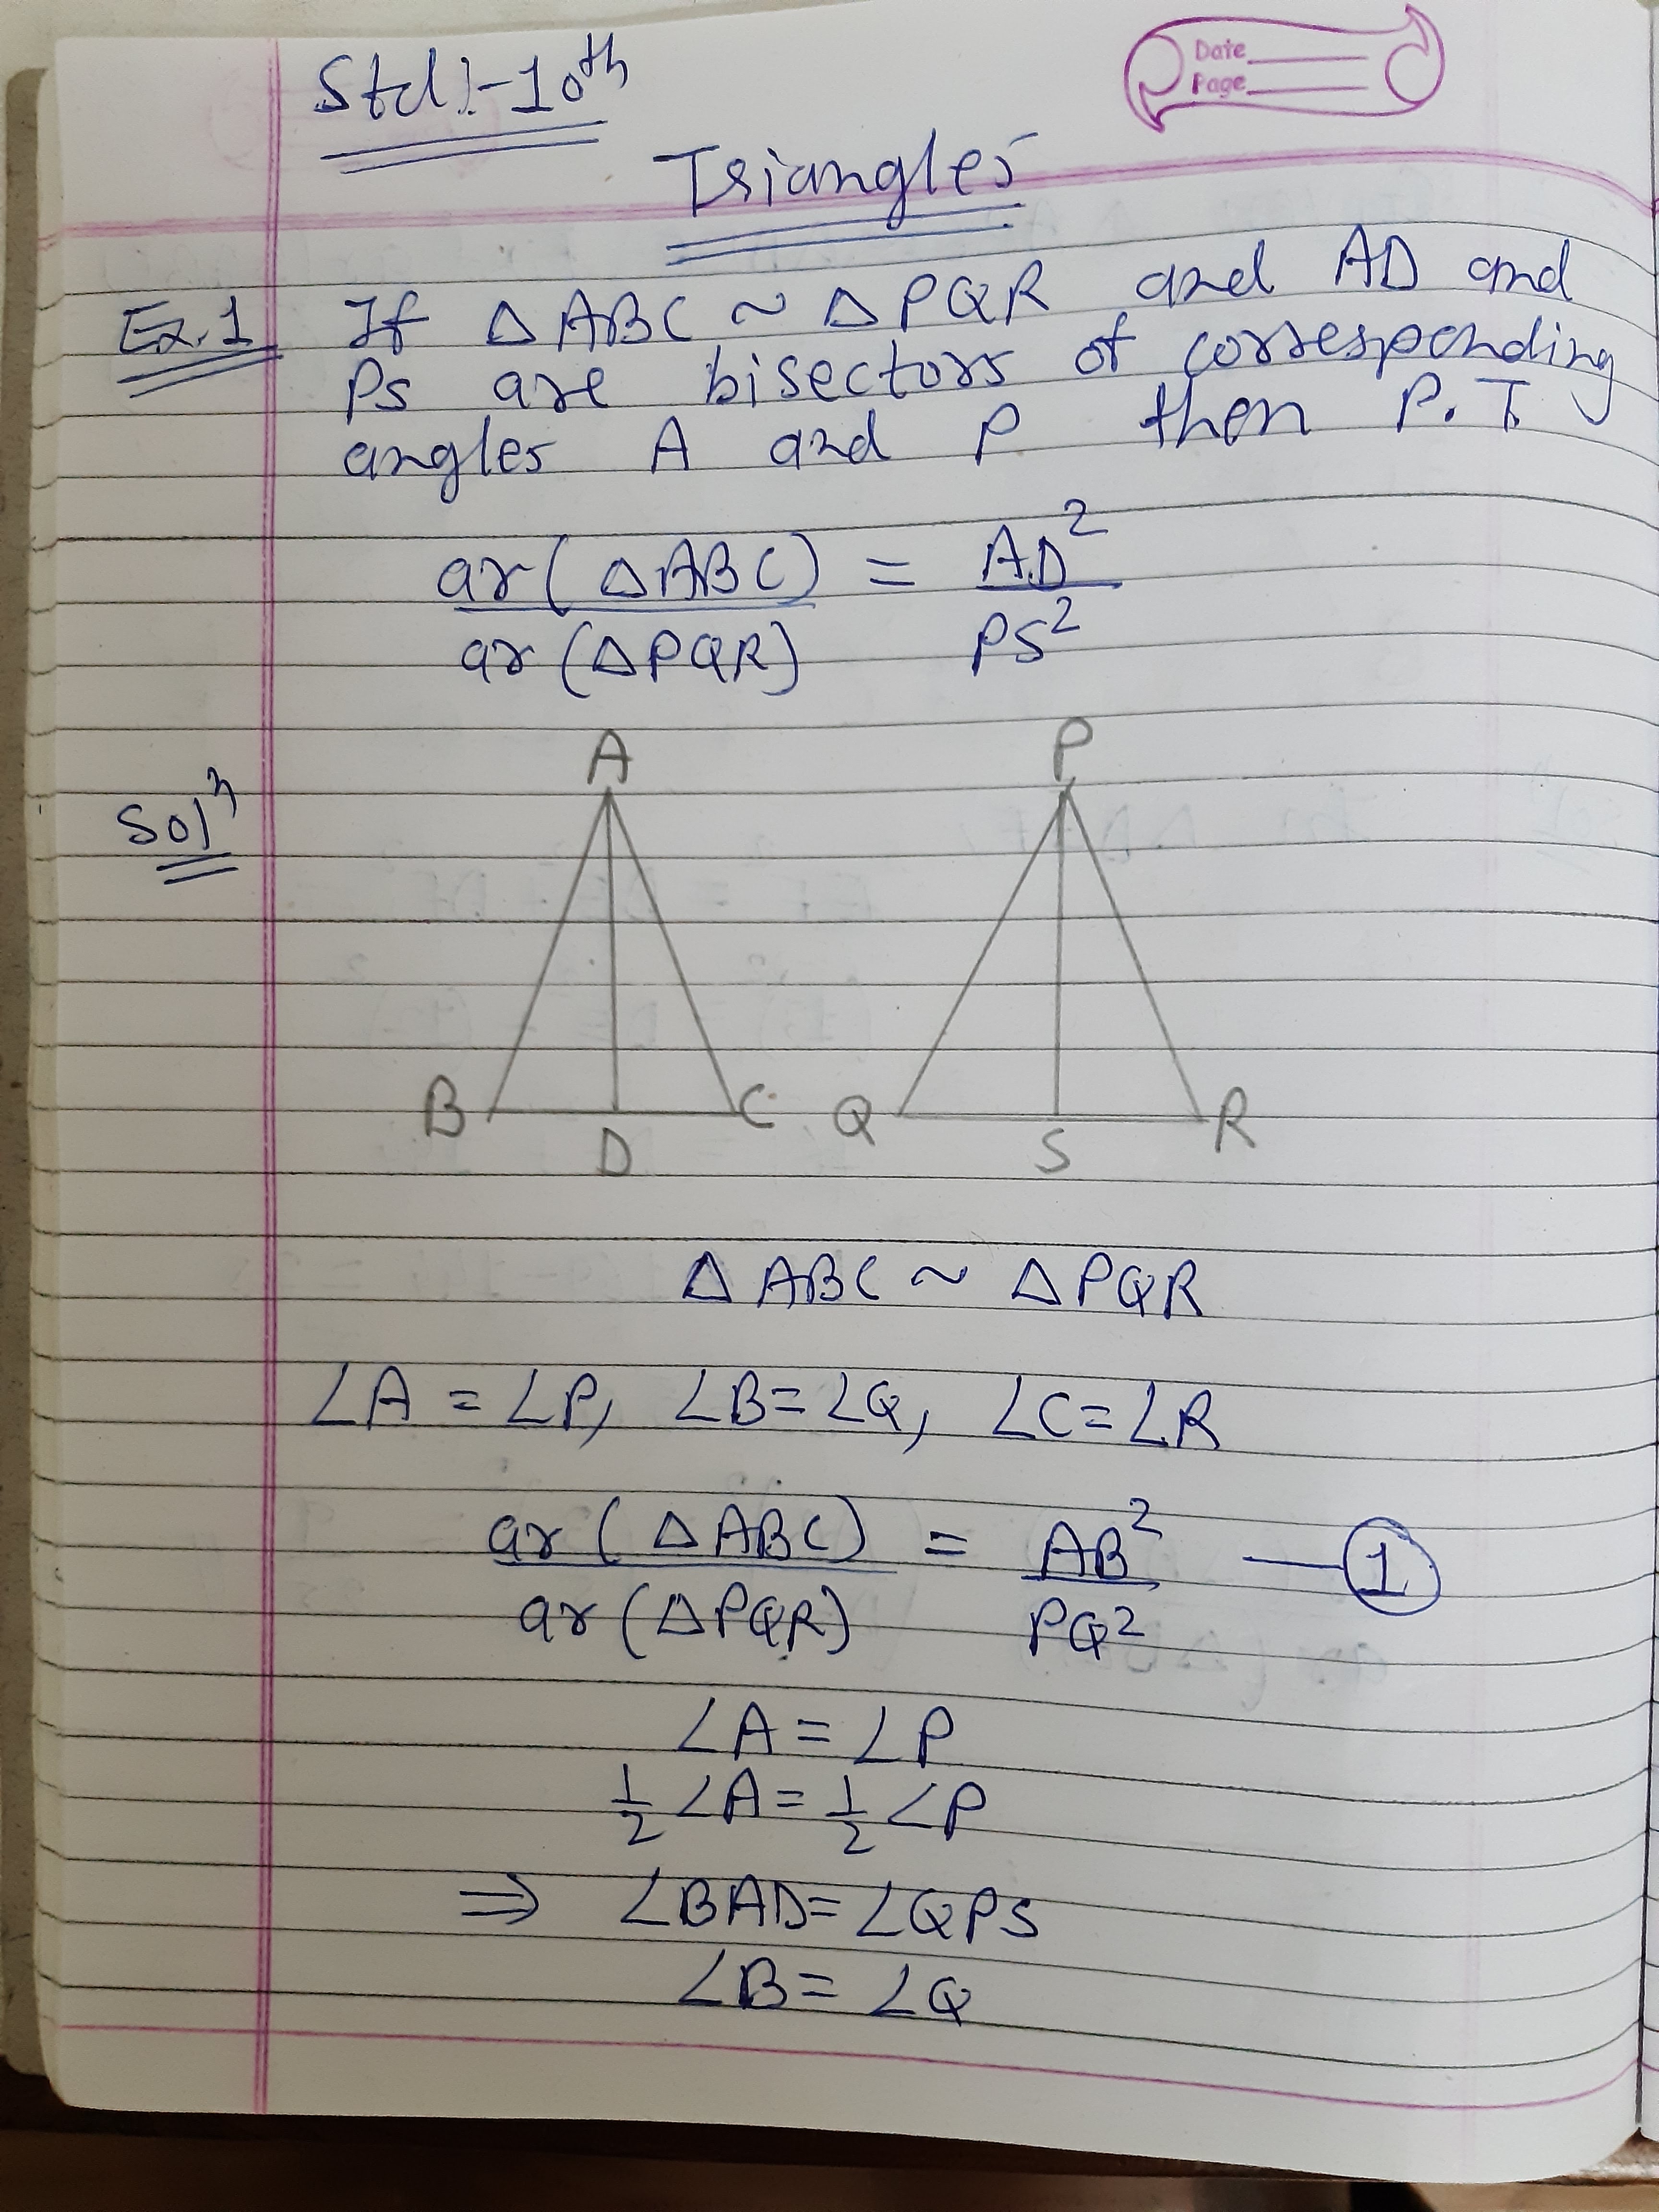 Std:-10th
Date
Page
Triangles
Ex.1 If △ABC ~ △PQR and AD and
Ps are bisectors of corresponding
angles A and P then P.T.
ar(△ABC) = AD²
ar(△PQR) PS²
Solⁿ
A P
B D C Q S R
△ABC ~ △PQR
∠A = ∠P, ∠B = ∠Q, ∠C = ∠R
ar(△ABC) = AB² —①
ar(△PQR) PQ²
∠A = ∠P
1/2 ∠A = 1/2 ∠P
⇒ ∠BAD = ∠QPS
∠B = ∠Q